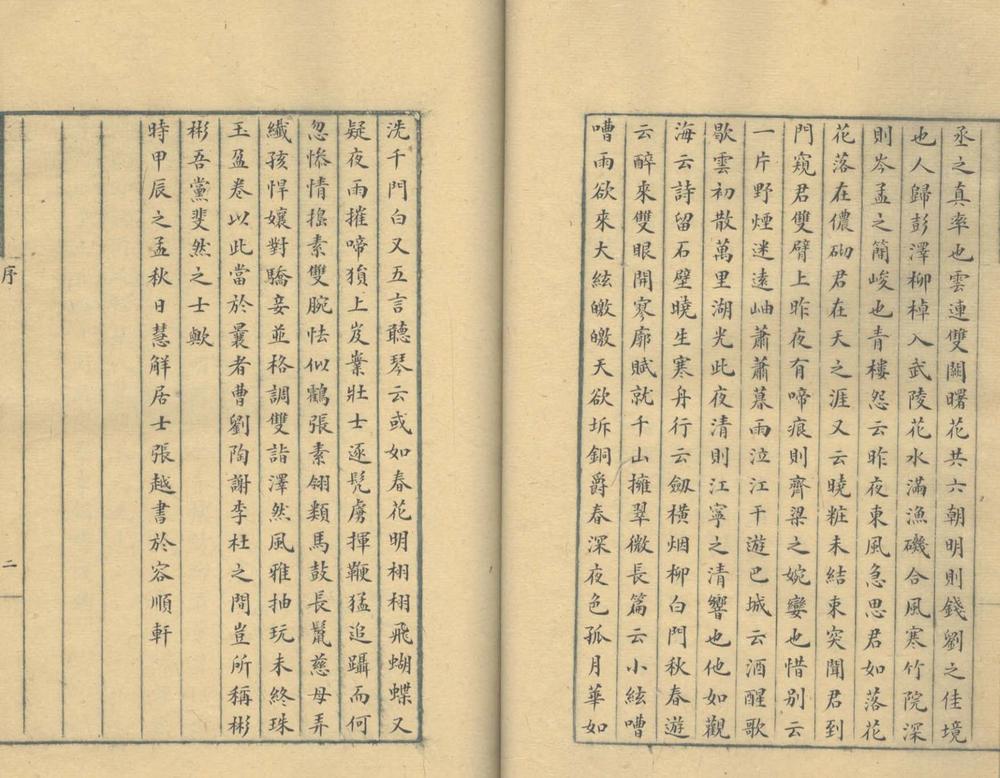 丞之真率也雲連雙闕曙花共六朝明則錢劉之佳境
也人歸彭澤柳棹入武陵花水滿漁磯合風寒竹院深
則岑孟之簡峻也青樓怨云昨夜東風急思君如落花
花落在儂砌君在天之涯又云曉粧未結束突聞君到
門窺君雙臂上昨夜有啼痕則齊梁之婉孌也惜別云
一片野煙迷遠岫蕭蕭暮雨泣江干遊巴城云酒醒歌
歇雲初散萬里湖光此夜清則江寧之清響也他如觀
海云詩留石壁曉生寒舟行云劔橫烟柳白門秋春遊
云醉來雙眼開寥廓賦就千山擁翠微長篇云小絃嘈
嘈雨欲來大絃皦皦天欲坼銅爵春深夜色孤月華如
洗千門白又五言聽琴云或如春花明栩栩飛蝴蝶又
疑夜雨摧啼狖上岌嶪壯士逐髡虜揮鞭猛追躡而何
忽慘情搊素雙腕怯似鶴張素翎類馬鼓長鬣慈母弄
纖孩悍孃對驕妾並格調雙詣澤然風雅抽玩未終珠
玉盈卷以此當於曩者曹劉陶謝李杜之間豈所稱彬
彬吾黨斐然之士歟
時甲辰之孟秋日慧解居士張越書於容順軒
序
二